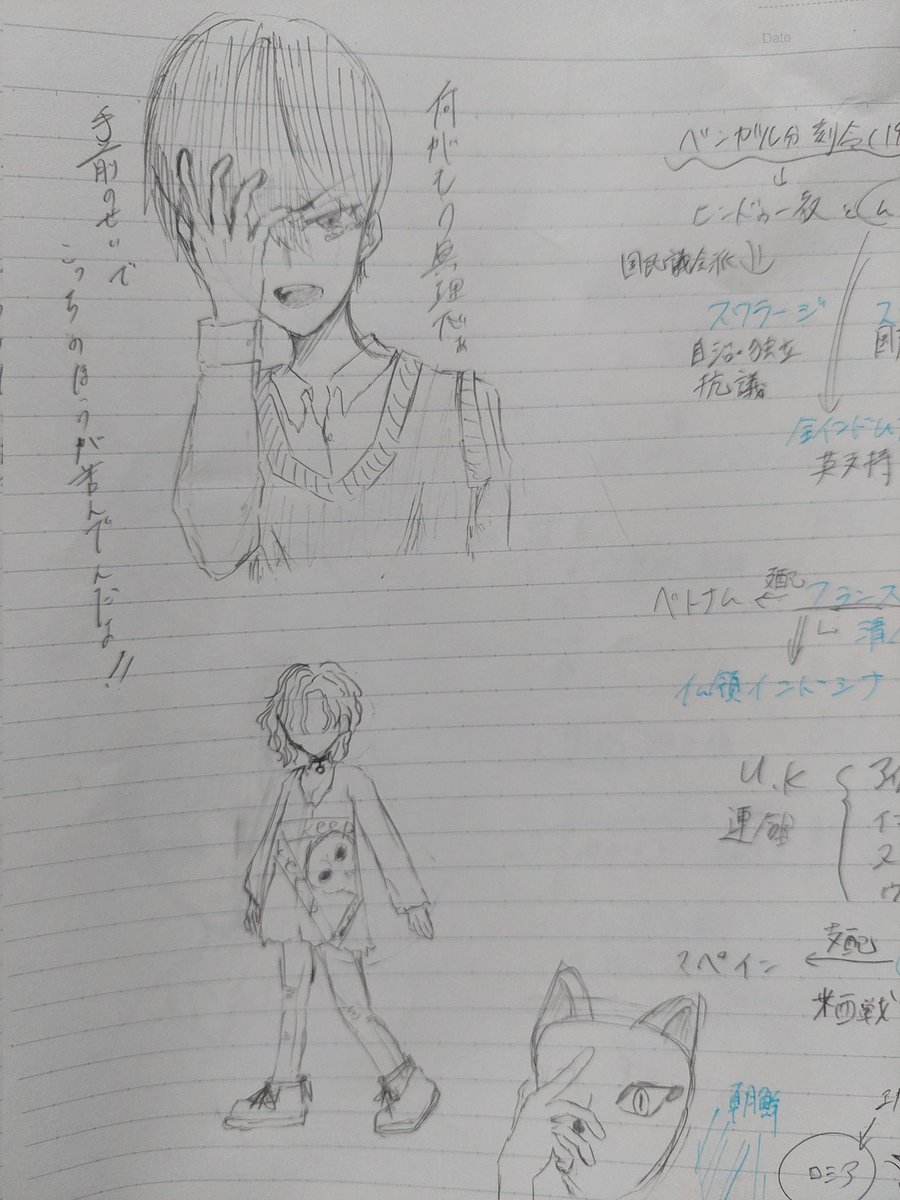 Date
何がもう無理だぁ
手前のせいで
こっちのほうが苦んでんだよ!!
ベンガル分刻令(19
↓
ヒンドゥー教と
国民議会派
スワラージ
自治・独立
抗議
全インドム
英支持
ベトナム ← 支配 フランス
清
仏領インドシナ
U.K
連合
スペイン ← 支配
米西戦
朝鮮
ロシア